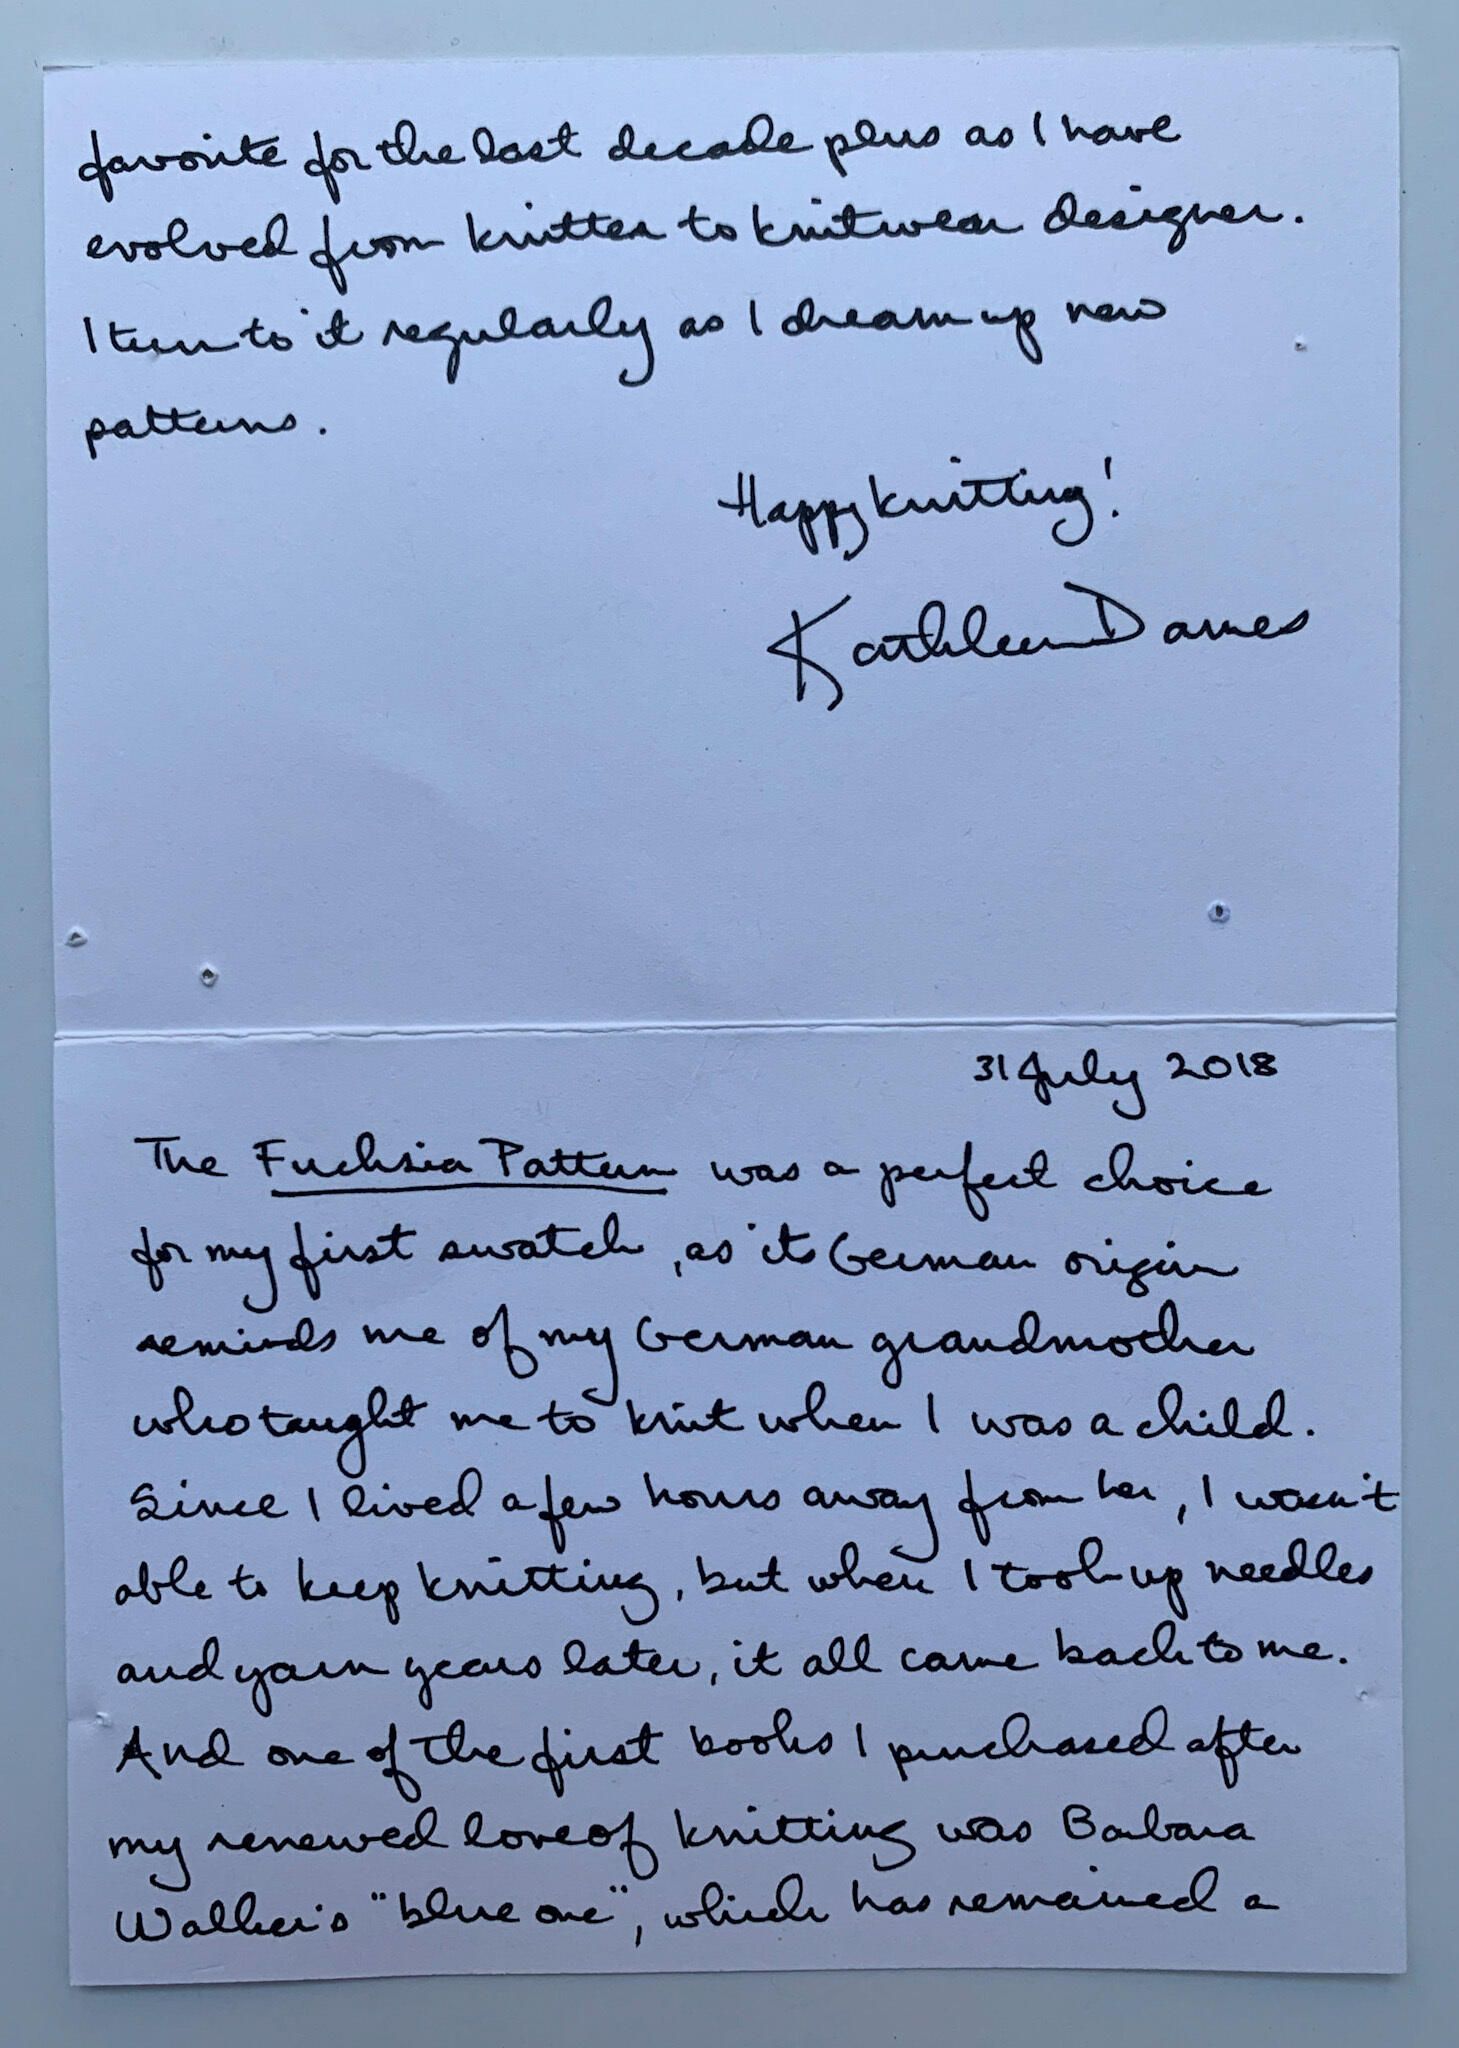 31 July 2018
The Fuchsia Pattern was a perfect choice
for my first swatch, as its German origin
reminds me of my German grandmother
who taught me to knit when I was a child.
Since I lived a few hours away from her, I wasn't
able to keep knitting, but when I took up needles
and yarn years later, it all came back to me.
And one of the first books I purchased after
my renewed love of knitting was Barbara
Walker's "blue one", which has remained a
favorite for the last decade plus as I have
evolved from knitter to knitwear designer.
I turn to it regularly as I dream up new
patterns.
Happy knitting!
Kathleen Dames